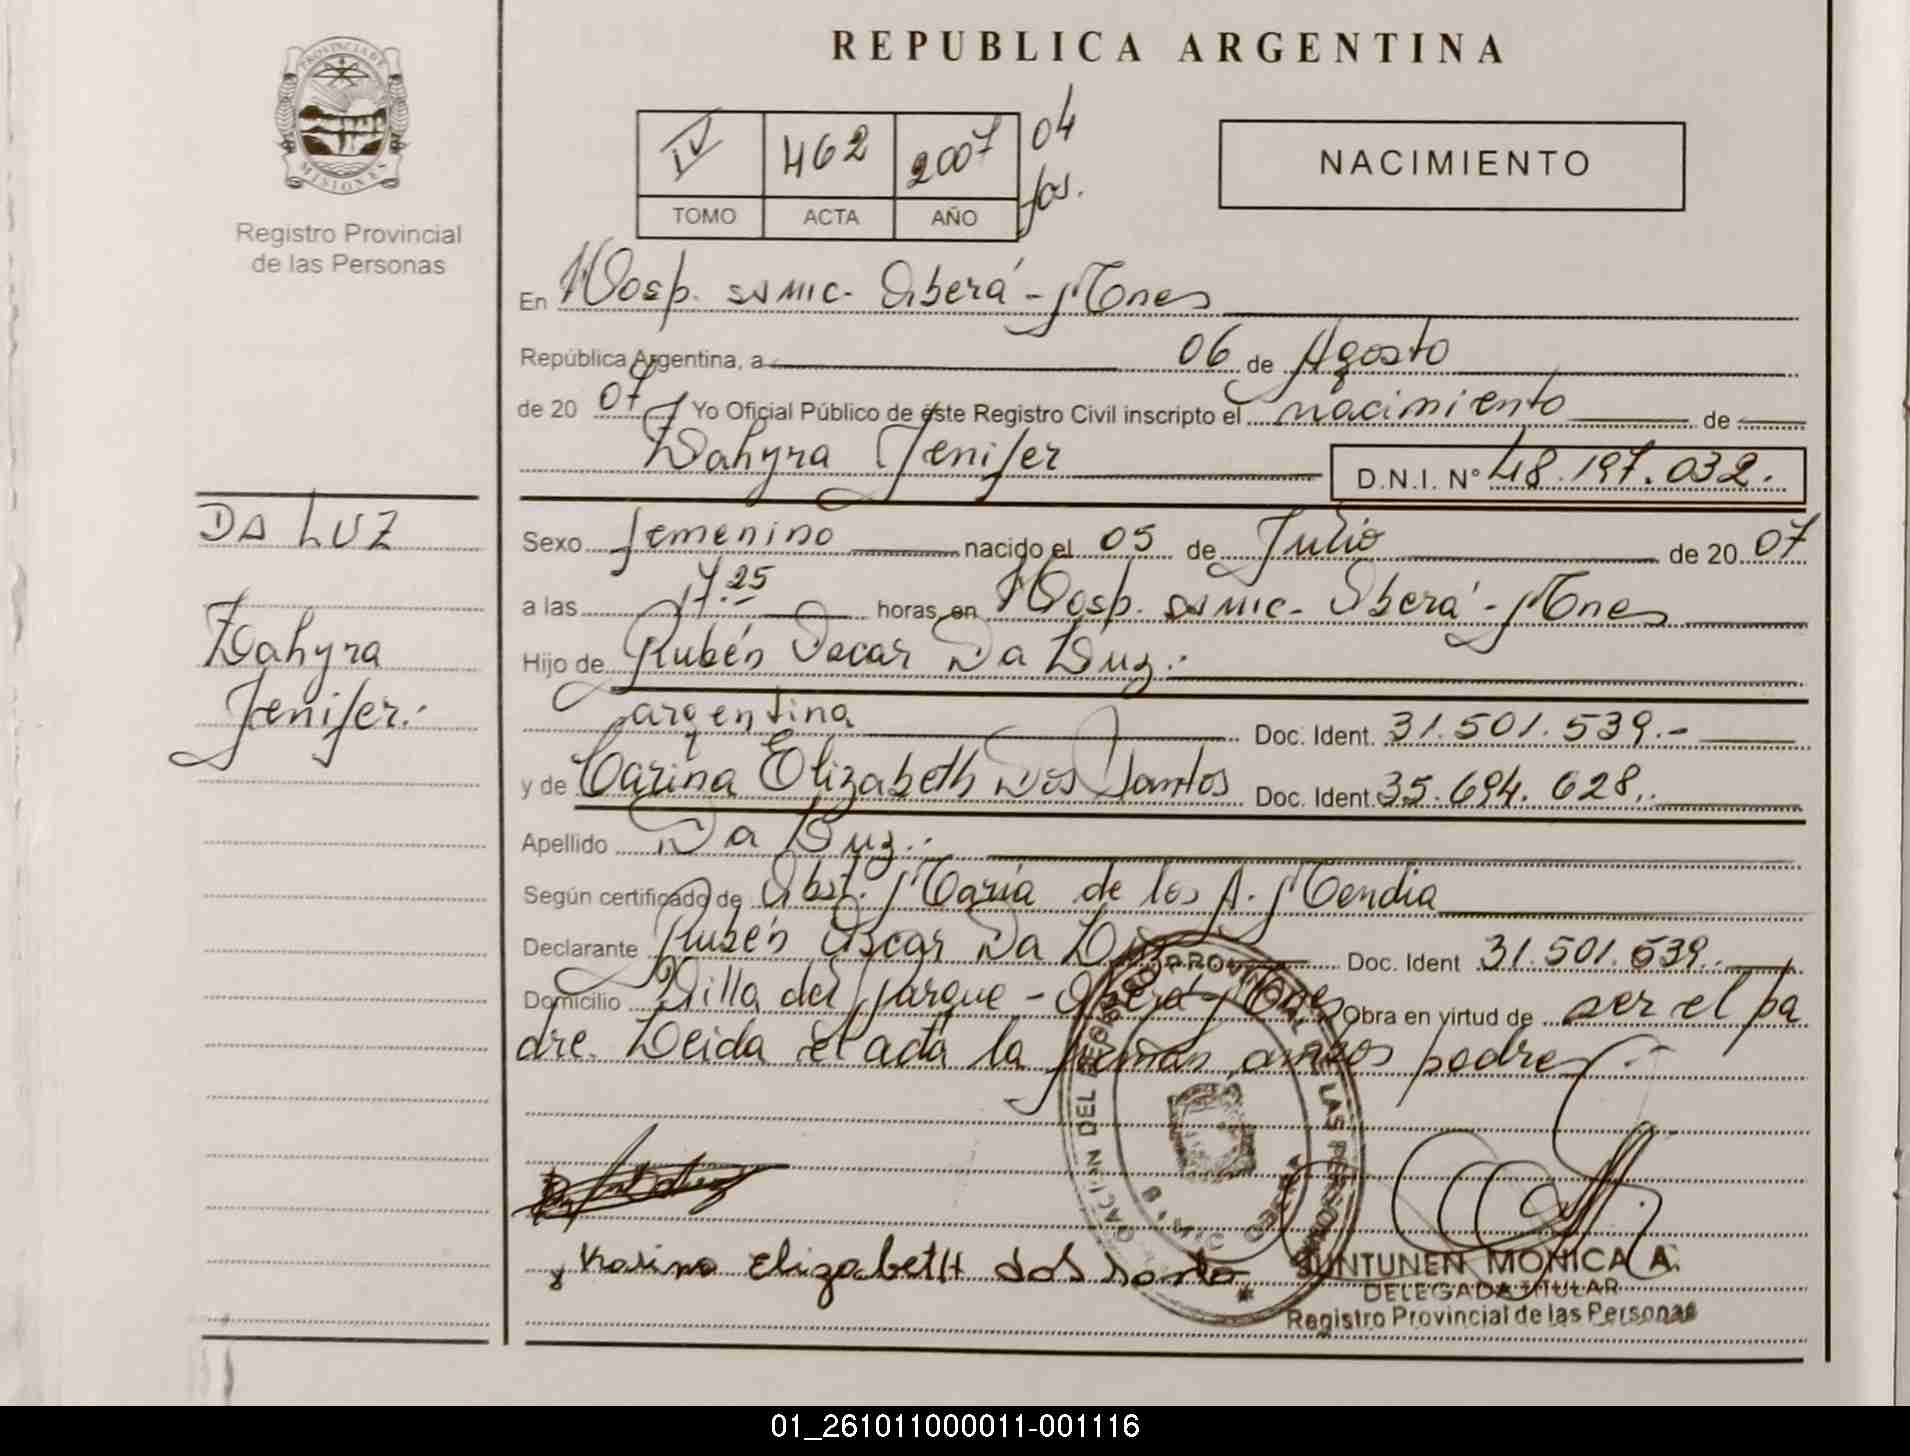 PROVINCIA DE
MISIONES
Registro Provincial
de las Personas
DA LUZ
Dahyra
Jenifer.-
REPUBLICA ARGENTINA
IV 462 2007 04
fos.
TOMO ACTA AÑO
NACIMIENTO
En Hosp. SAMIC- Oberá - Mnes
República Argentina, a 06 de Agosto
de 20 07 Yo Oficial Público de éste Registro Civil inscripto el nacimiento de
Dahyra Jenifer D.N.I. N° 48.197.032.
Sexo femenino nacido el 05 de Julio de 20 07
a las 17.25 horas en Hosp. SAMIC- Oberá - Mnes
Hijo de Rubén Oscar Da Luz.-
argentina Doc. Ident. 31.501.539.-
y de Carina Elizabeth Dos Santos Doc. Ident. 35.694.628.-
Apellido Da Luz.-
Según certificado de Obst. María de los A. Mendia
Declarante Rubén Oscar Da Luz Doc. Ident 31.501.539.-
Domicilio Villa del Parque - Oberá - Mnes Obra en virtud de ser el pa
dre. Leida el acta la firman ambos padres.-
Karina Elizabeth dos santo
DEL REGISTRO PROVINCIAL DE LAS PERSONAS
SUNTUNEN MONICA A.
DELEGADA TITULAR
Registro Provincial de las Personas
01_261011000011-001116